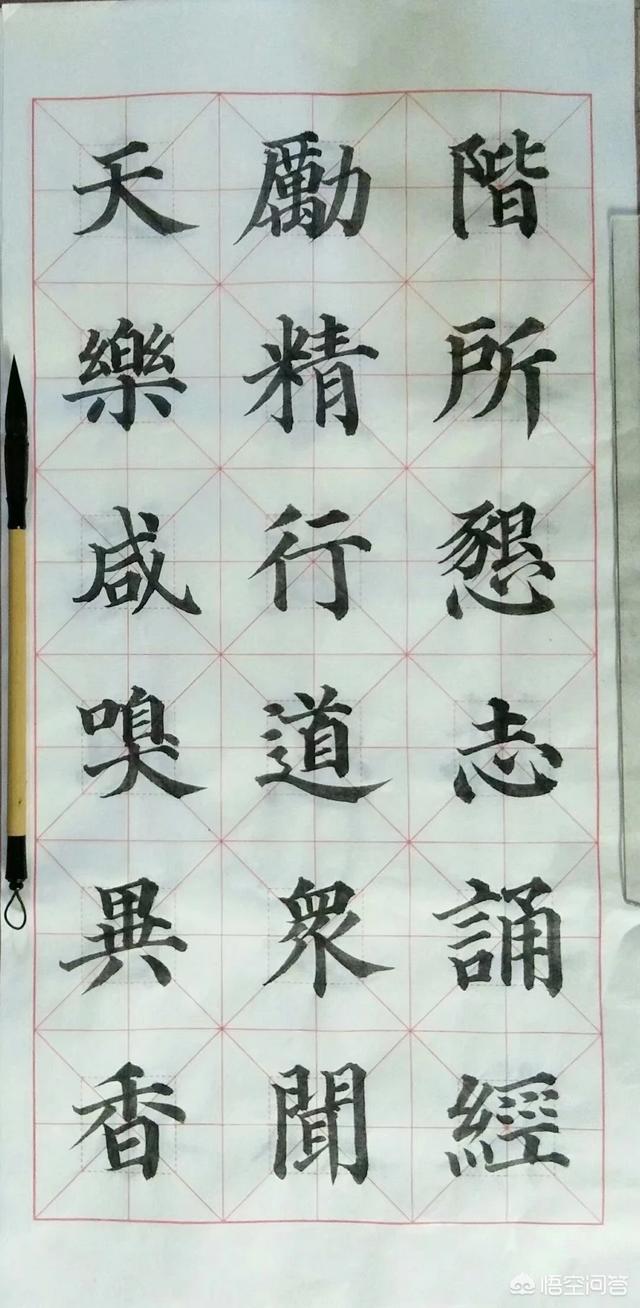 階所懇志誦經
勵精行道衆聞
天樂咸嗅異香
悟空问答